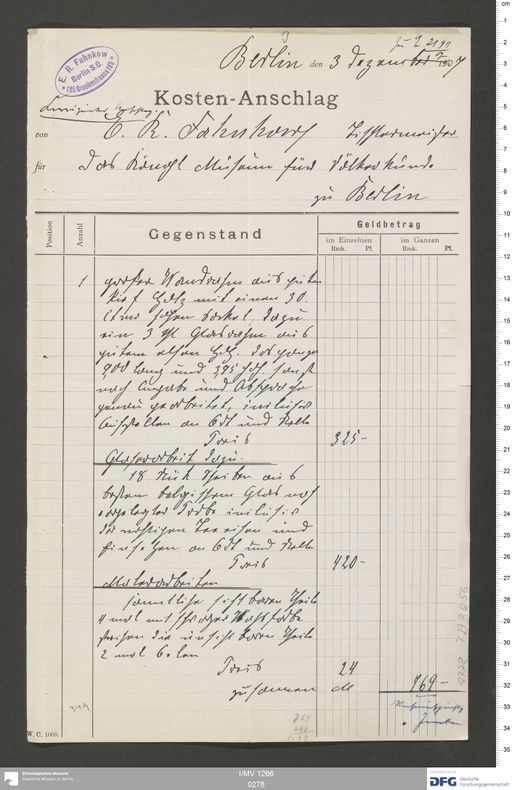 E. R. Fahnkow
Berlin S.O.
* 185 Oranienstrasse 185 *
Berlin den 3 Dezember 1907
Kosten-Anschlag
von E. R. Fahnkow Tischlermeister
für Das Königl Museum für Völkerkunde
zu Berlin
Position
Anzahl
Gegenstand
Geldbetrag
im Einzelnen
im Ganzen
Rmk. Pf.
Rmk. Pf.
1 großer Wandrahm aus guten
Kief Holz mit einen 30
ctm hohen Sockel. Dazu
ein 3 Glasrahm aus
gutem Holz. Das ganze
9,00 lang und 3,95 hoch
nach Angabe und Absprache
genau gearbeitet, inclusiv
Aufstellen an Ort und Stelle
Preis 325-
Glaserarbeit dazu.
18 Stück Scheiben aus
besten belgischem Glas nach
vorgelegter Probe inclusiv
und
Einsetzen an Ort und Stelle
Preis 420-
Malerarbeiten
sämtliche sichtbaren Theile
4 mal mit
streichen die unsichtbaren Theile
2 mal
Preis 24
zusammen M 769-
W. C. 1003.
Ethnologisches Museum
Staatliche Museen zu Berlin
I/MV 1266
0278
DFG Deutsche
Forschungsgemeinschaft